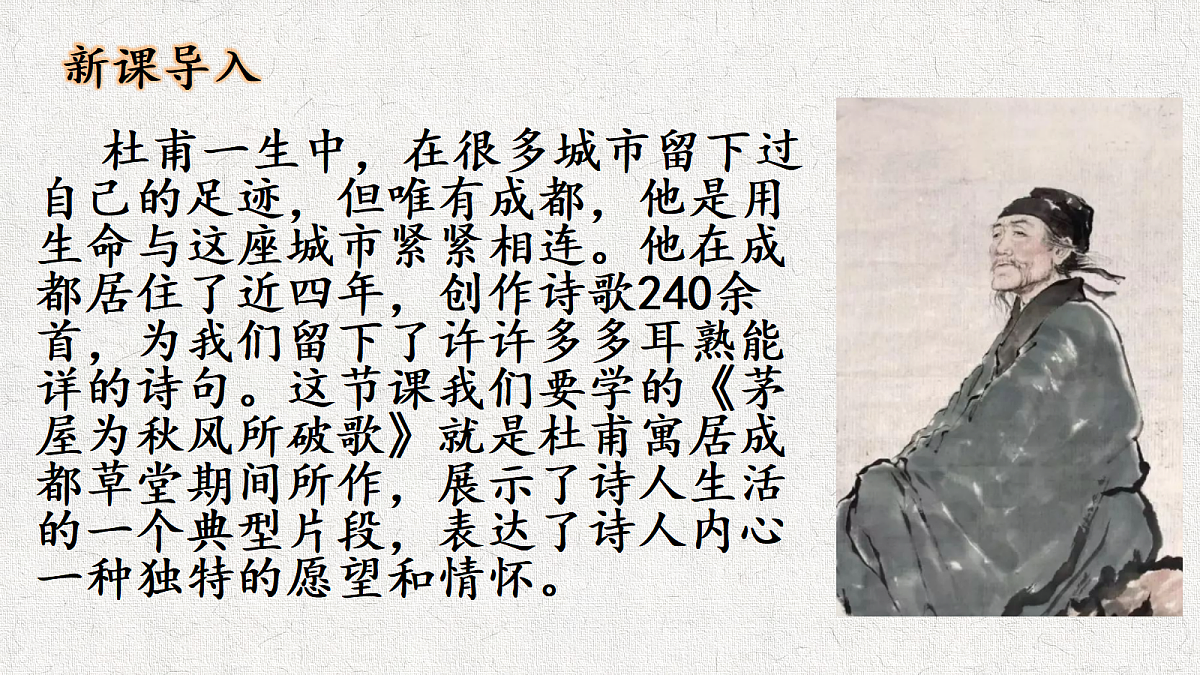 新课导入
杜甫一生中，在很多城市留下过
自己的足迹，但唯有成都，他是用
生命与这座城市紧紧相连。他在成
都居住了近四年，创作诗歌240余
首，为我们留下了许许多多耳熟能
详的诗句。这节课我们要学的《茅
屋为秋风所破歌》就是杜甫寓居成
都草堂期间所作，展示了诗人生活
的一个典型片段，表达了诗人内心
一种独特的愿望和情怀。